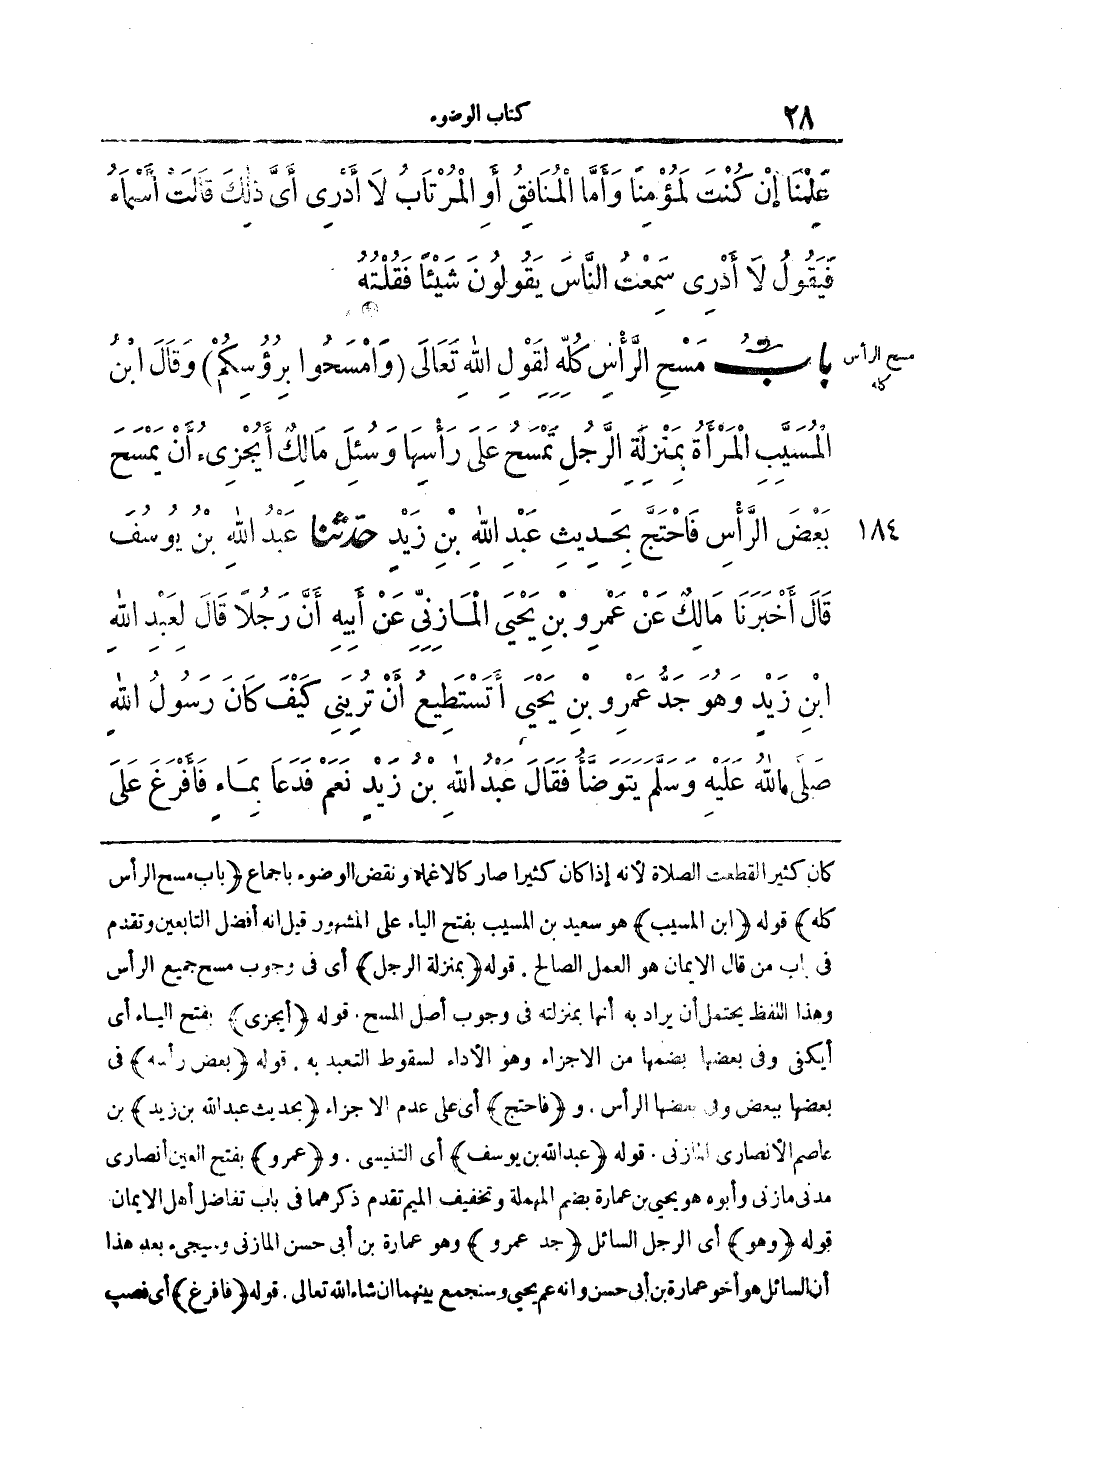 ٢٨
كتاب الوضوء
عَلِمْنَا إِنْ كُنْتَ لَمُؤْمِنًا وَأَمَّا الْمُنَافِقُ أَوِ الْمُرْتَابُ لَا أَدْرِى أَىَّ ذٰلِكَ قَالَتْ أَسْمَاءُ
فَيَقُولُ لَا أَدْرِى سَمِعْتُ النَّاسَ يَقُولُونَ شَيْئًا فَقُلْتُهُ
بابُ مَسْحِ الرَّأْسِ كُلِّهِ لِقَوْلِ اللهِ تَعَالَى (وَامْسَحُوا بِرُؤُسِكُمْ) وَقَالَ ابْنُ
مسح الرأس
كله
الْمُسَيَّبِ الْمَرْأَةُ بِمَنْزِلَةِ الرَّجُلِ تَمْسَحُ عَلَى رَأْسِهَا وَسُئِلَ مَالِكٌ أَيُجْزِىءُ أَنْ يَمْسَحَ
١٨٤
بَعْضَ الرَّأْسِ فَاحْتَجَّ بِحَدِيثِ عَبْدِ اللهِ بْنِ زَيْدٍ حَدَّثَنَا عَبْدُ اللهِ بْنُ يُوسُفَ
قَالَ أَخْبَرَنَا مَالِكٌ عَنْ عَمْرِو بْنِ يَحْيَى الْمَازِنِىِّ عَنْ أَبِيهِ أَنَّ رَجُلًا قَالَ لِعَبْدِ اللهِ
ابْنِ زَيْدٍ وَهُوَ جَدُّ عَمْرِو بْنِ يَحْيَى أَتَسْتَطِيعُ أَنْ تُرِيَنِى كَيْفَ كَانَ رَسُولُ اللهِ
صَلَّى اللهُ عَلَيْهِ وَسَلَّمَ يَتَوَضَّأُ فَقَالَ عَبْدُ اللهِ بْنُ زَيْدٍ نَعَمْ فَدَعَا بِمَاءٍ فَأَفْرَغَ عَلَى
كان كثيرا لقطعت الصلاة لأنه إذا كان كثيرا صار كالاغماء ونقض الوضوء باجماع ﴿باب مسح الرأس
كله﴾ قوله ﴿ابن المسيب﴾ هو سعيد بن المسيب بفتح الياء على المشهور قيل انه أفضل التابعين وتقدم
فى باب من قال الايمان هو العمل الصالح. قوله ﴿بمنزلة الرجل﴾ أى فى وجوب مسح جميع الرأس
وهذا اللفظ يحتمل أن يراد به أنها بمنزلته فى وجوب أصل المسح. قوله ﴿أيجزى﴾ بفتح الياء أى
أيكفى وفى بعضها بضمها من الاجزاء وهو الأداء لسقوط التعبد به. قوله ﴿بعض رأسه﴾ فى
بعضها ببعض وفى بعضها الرأس. و ﴿فاحتج﴾ أى على عدم الاجزاء ﴿بحديث عبدالله بن زيد﴾ بن
عاصم الأنصارى المازنى. قوله ﴿عبدالله بن يوسف﴾ أى التنيسى. و ﴿عمرو﴾ بفتح العين أنصارى
مدنى مازنى وأبوه هو يحيى بن عمارة بضم المهملة وتخفيف الميم تقدم ذكرهما فى باب تفاضل أهل الايمان
قوله ﴿وهو﴾ أى الرجل السائل ﴿جد عمرو﴾ وهو عمارة بن أبى حسن المازنى وسيجىء بعد هذا
أن السائل هو أخو عمارة بن أبى حسن وانه عم يحيى وسنجمع بينهما ان شاء الله تعالى. قوله ﴿فافرغ﴾ أى فصب